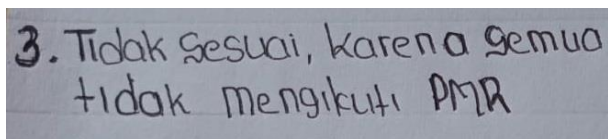 3. Tidak Sesuai, karena semua
tidak mengikuti PMR